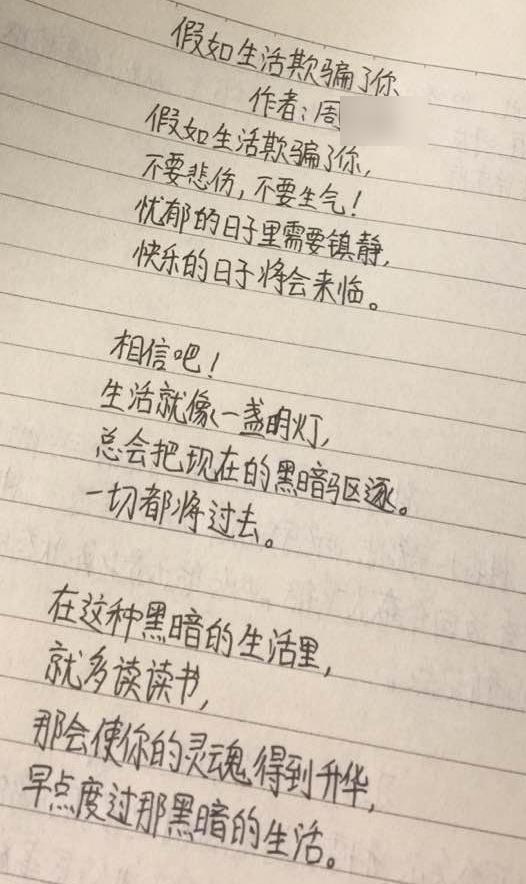 假如生活欺骗了你
作者：周
假如生活欺骗了你，
不要悲伤，不要生气！
忧郁的日子里需要镇静，
快乐的日子将会来临。
相信吧！
生活就像一盏明灯，
总会把现在的黑暗驱逐。
一切都将过去。
在这种黑暗的生活里，
就多读读书，
那会使你的灵魂得到升华，
早点度过那黑暗的生活。